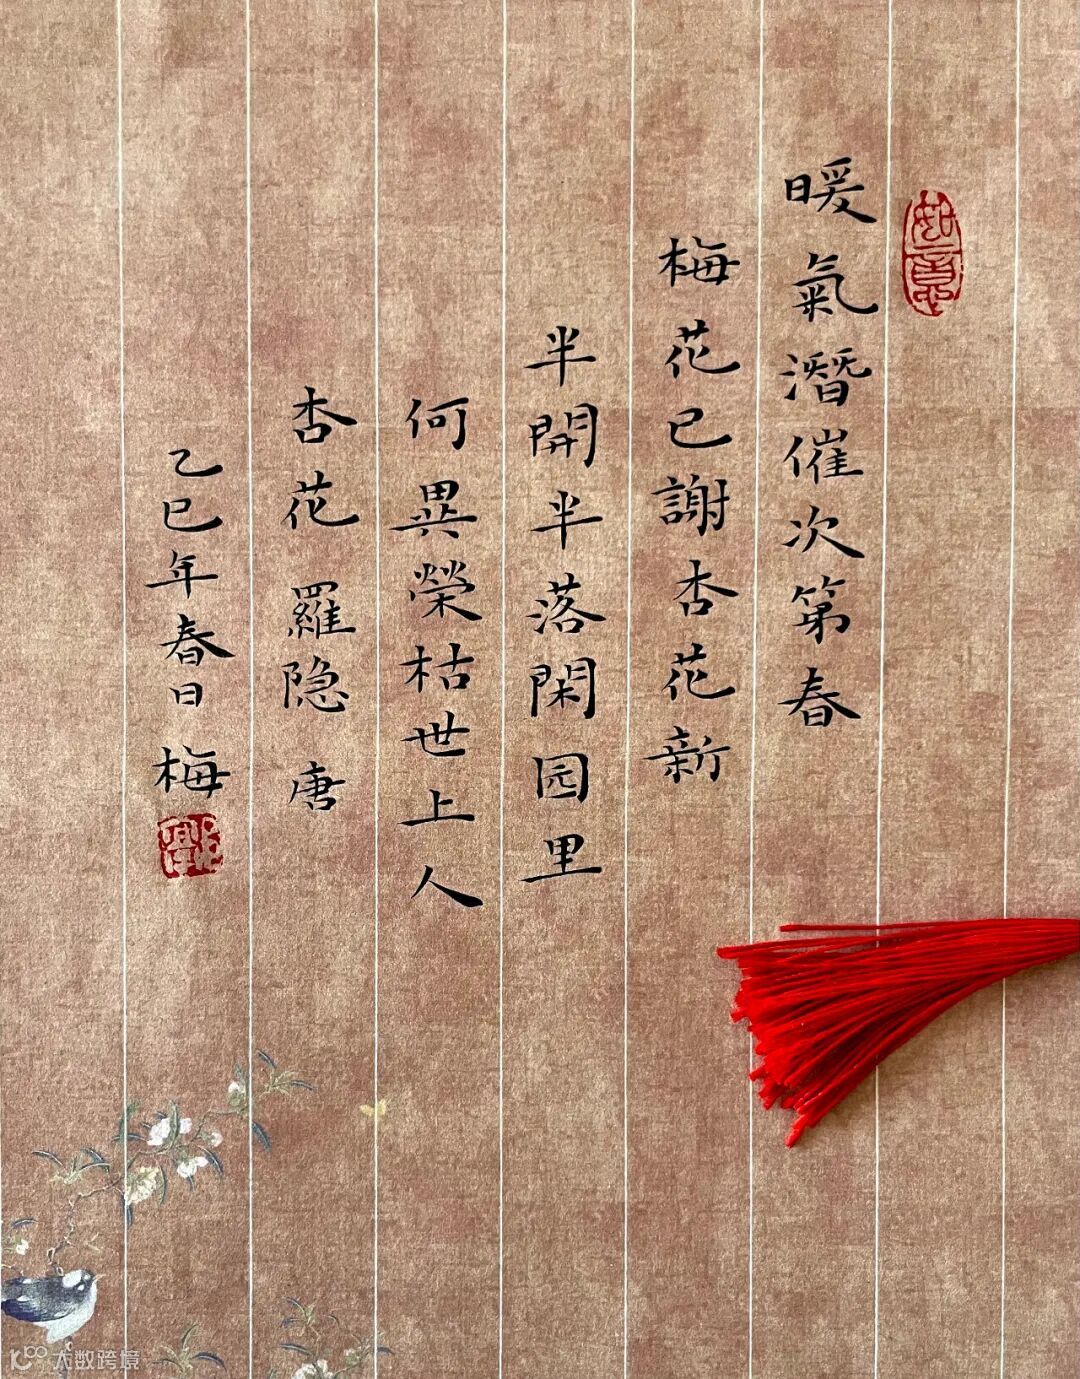 暖氣潛催次第春
梅花已謝杏花新
半開半落閑园里
何異榮枯世上人
杏花 羅隐 唐
乙巳年春日 梅
大数跨境